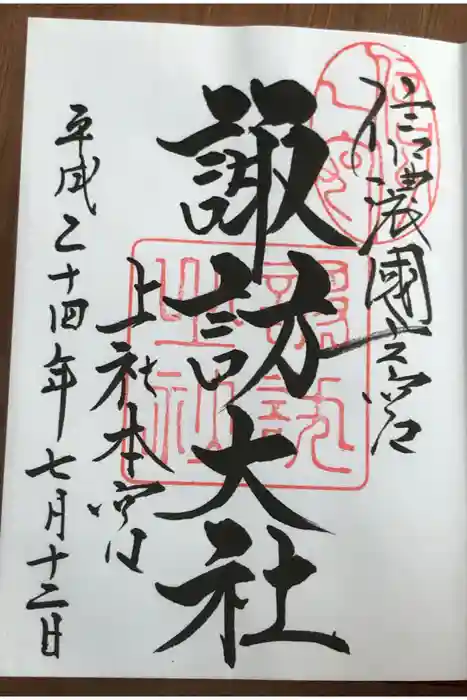 信濃國一之宮
諏訪大社
上社本宮
平成二十四年七月十二日